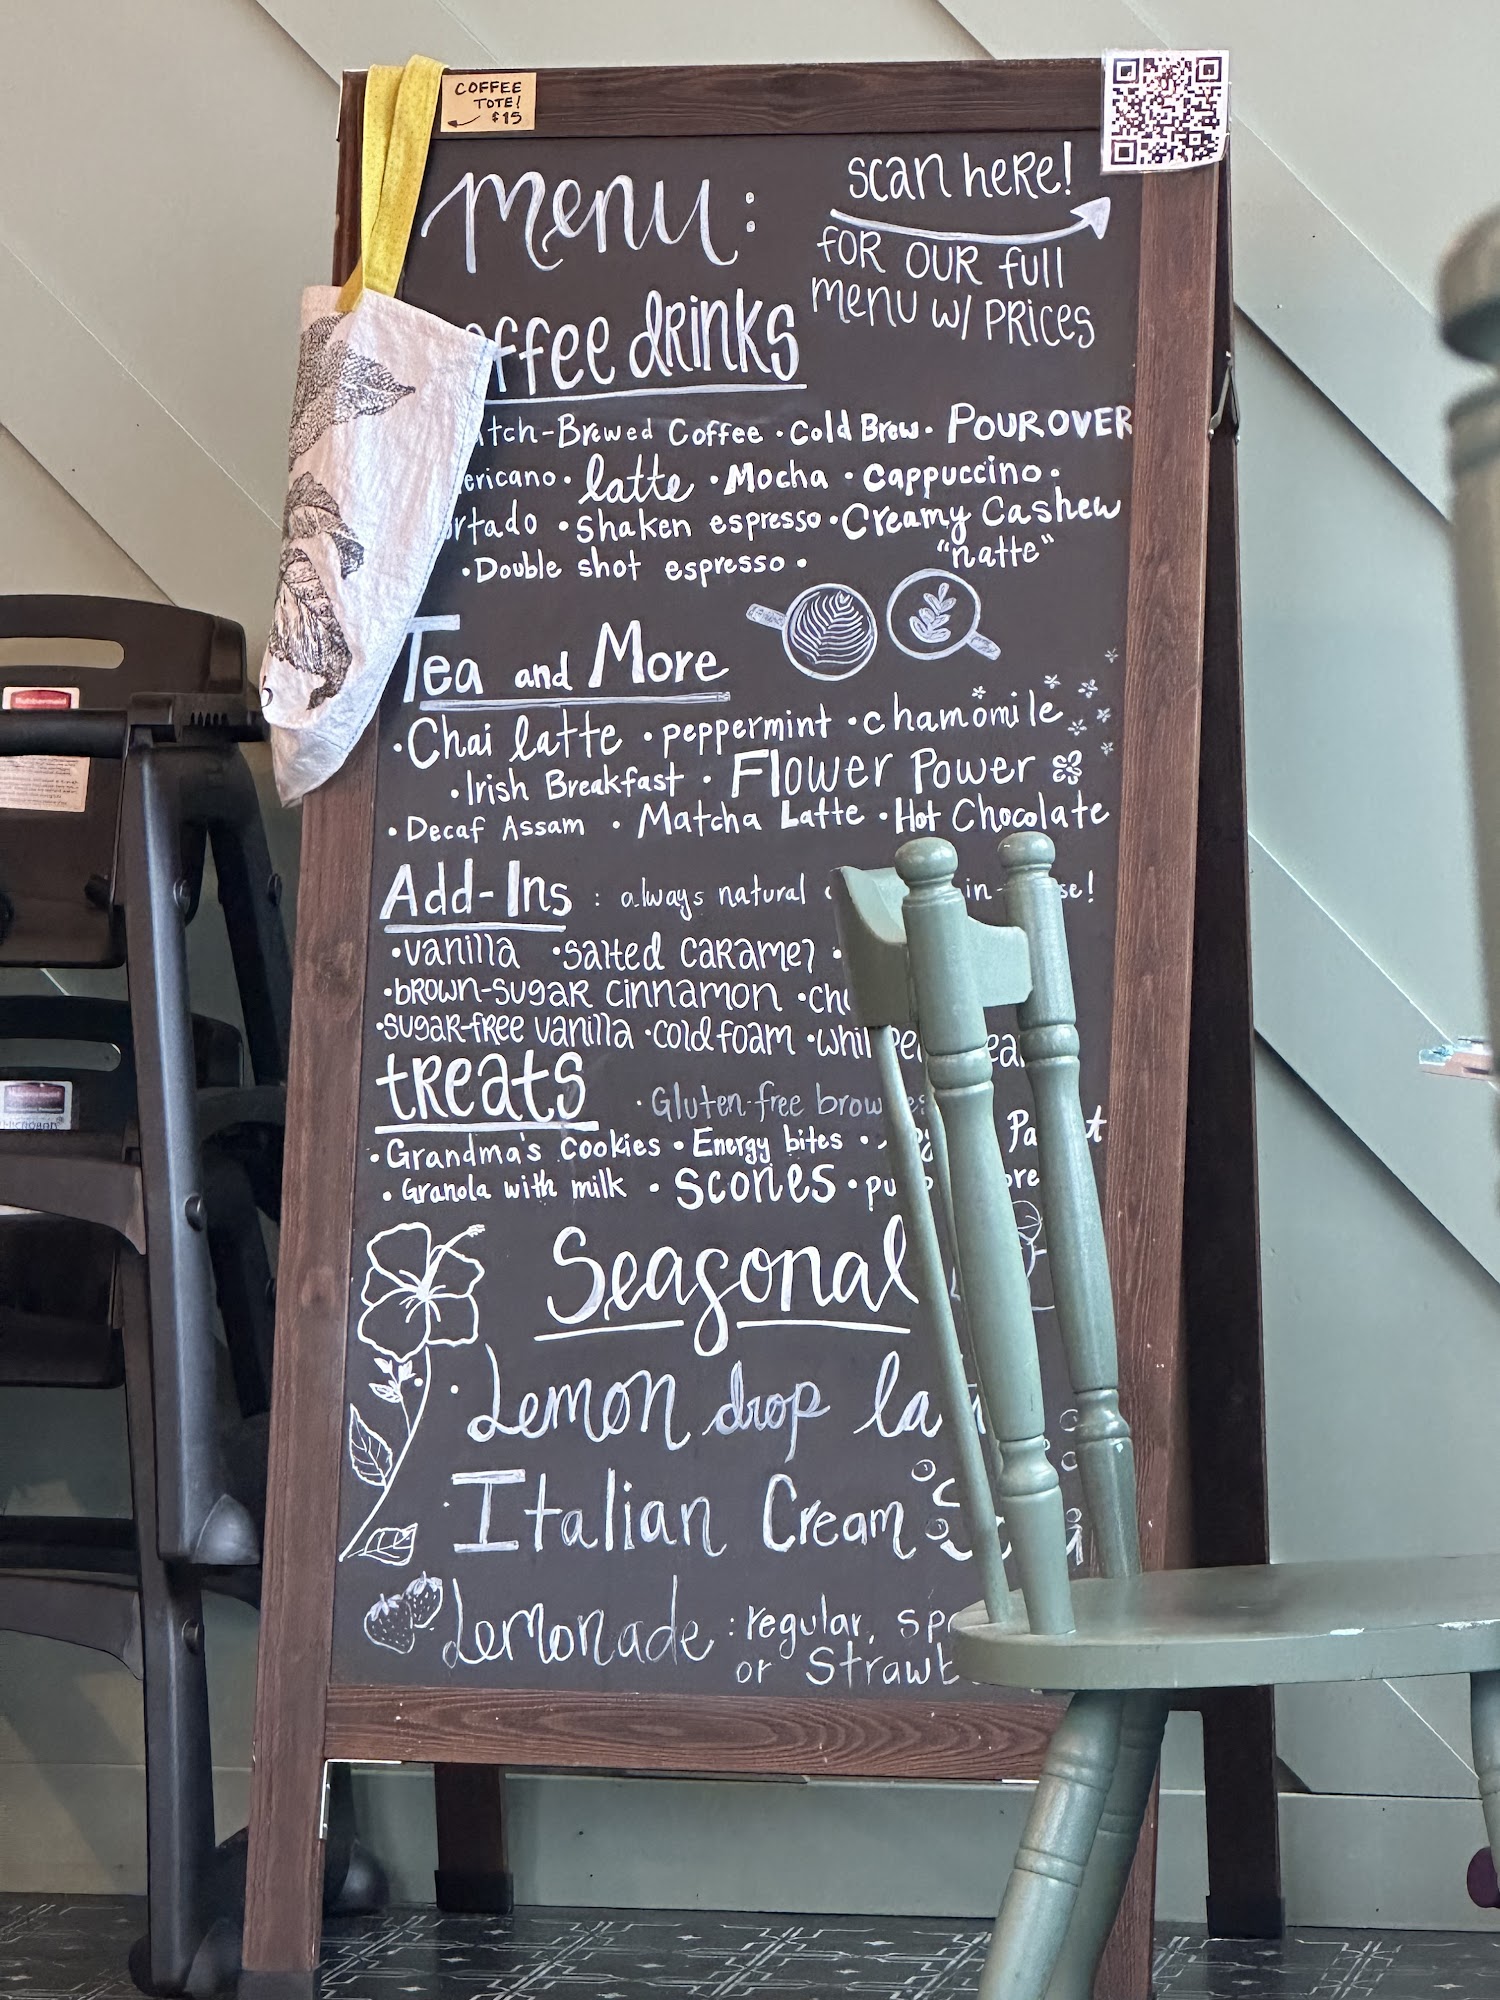 COFFEE
TOTE!
$15
menu:
scan here!
for our full
menu w/ prices
drinks
-Brewed Coffee · Cold Brew · POUROVER
· latte · Mocha · Cappuccino ·
· Shaken espresso · Creamy Cashew
"natte"
· Double shot espresso ·
Tea and More
· Chai latte · peppermint · chamomile
· Irish Breakfast · Flower Power
· Decaf Assam · Matcha Latte · Hot Chocolate
Add-Ins : always natural
· vanilla · salted caramel ·
· brown-sugar cinnamon ·
· sugar-free vanilla · cold foam ·
treats · Gluten-free
· Grandma's Cookies · Energy bites ·
· Granola with milk · scones ·
Seasonal
· Lemon drop
· Italian Cream
Lemonade : regular,
or